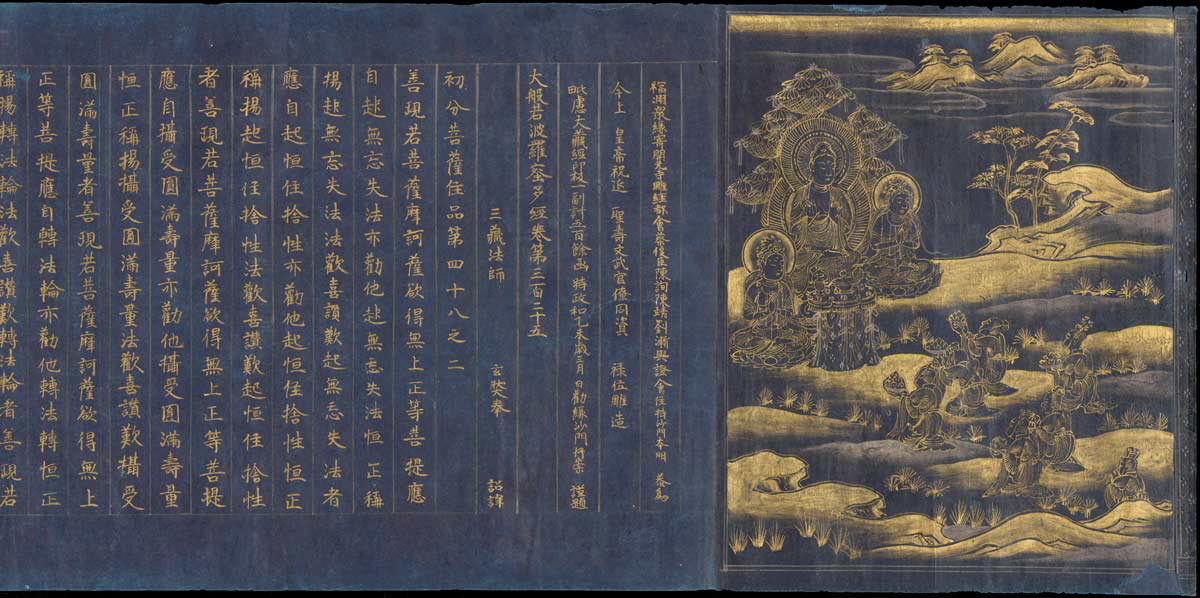 福州衆縁寄開元寺雕經都會蔡俊臣陳詢陳靖劉漸與證會住持沙門本明 恭為
今上 皇帝祝延 聖壽文武官僚同資 祿位雕造
毗盧大藏經印板一副計五百餘函 時政和乙未歲二月 日勸緣沙門行崇 謹題
大般若波羅蜜多經卷第三百二十五
三藏法師 玄奘奉 詔譯
初分菩薩住品第四十八之二
善現若菩薩摩訶薩欲得無上正等菩提應
自起無忘失法亦勸他起無忘失法恒正稱
揚起無忘失法法歡喜讚歎起無忘失法者
應自起恒住捨性亦勸他起恒住捨性恒正
稱揚起恒住捨性法歡喜讚歎起恒住捨性
者善現若菩薩摩訶薩欲得無上正等菩提
應自攝受圓滿壽量亦勸他攝受圓滿壽量
恒正稱揚攝受圓滿壽量法歡喜讚歎攝受
圓滿壽量者善現若菩薩摩訶薩欲得無上
正等菩提應自轉法輪亦勸他轉法轉恒正
稱揚轉法輪法歡喜讚歎轉法輪者善現若